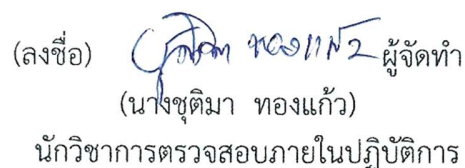 (ลงชื่อ) ชุติมา ทองแก้ว ผู้จัดทำ
(นางชุติมา ทองแก้ว)
นักวิชาการตรวจสอบภายในปฏิบัติการ